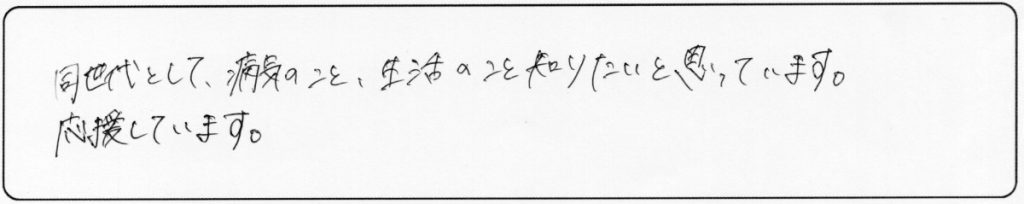 同世代として、病気のこと、生活のこと知りたいと思っています。
応援しています。